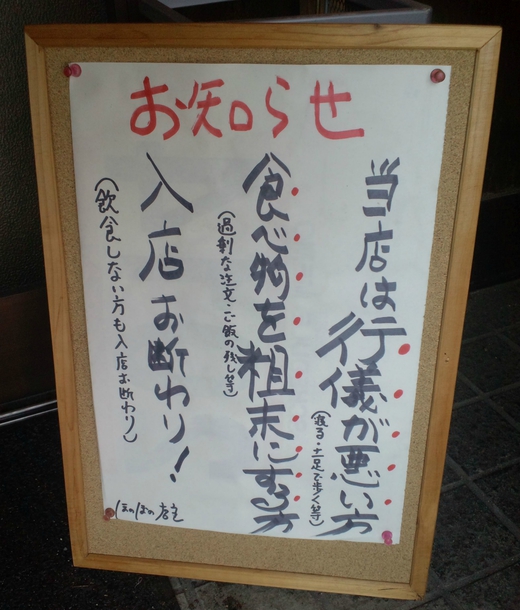 お知らせ
当店は行儀が悪い方
(寝る・土足で歩く等)
食べ物を粗末にする方
(過剰な注文・ご飯の残し等)
入店お断わり!
(飲食しない方も入店お断わり)
ほのぼの店主